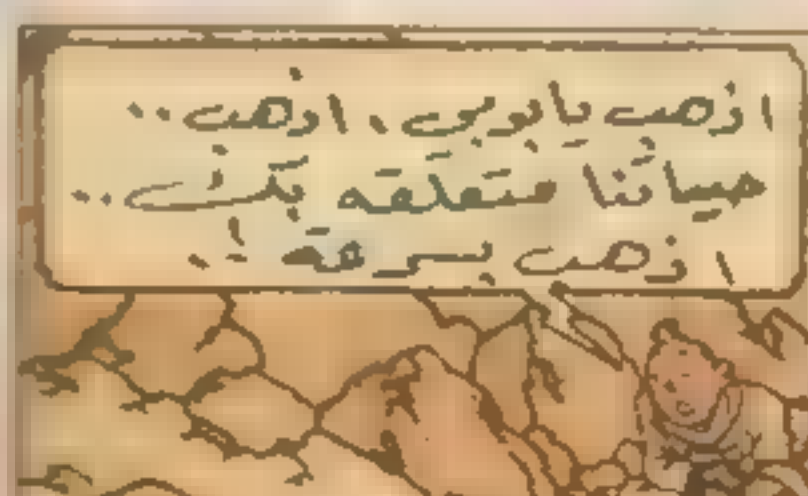 اذهب يا بوبي، اذهب..
حياتنا متعلقة بك..
اذهب بسرعة !.